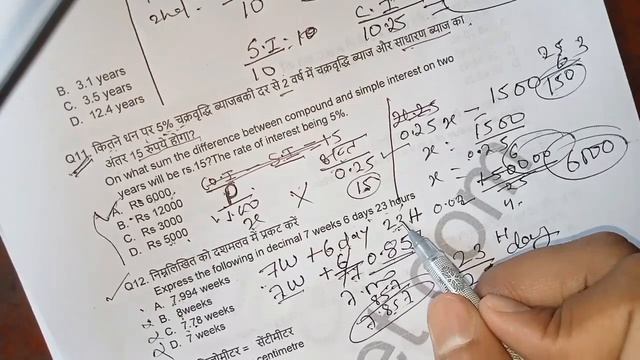 2nd.
10
S.I = 10
10
C.I
10.25
B. 3.1 years
C. 3.5 years
D. 12.4 years
Q11. कितने धन पर 5% चक्रवृद्धि ब्याजबकी दर से 2 वर्ष में चक्रवृद्धि ब्याज और साधारण ब्याज का
अंतर 15 रुपये होगा?
On what sum the difference between compound and simple interest on two
years will be rs.15?The rate of interest being 5%.
A. RS 6000
B. Rs 12000
C. RS 3000
D. RS 5000
0.25
15
0.25x = 1500
x = 1500
0.25
6000
150
Q12. निम्नलिखित को दशमलव में प्रकट करें
Express the following in decimal 7 weeks 6 days 23 hours
A. 7.994 weeks
B. 8weeks
C. 7.78 weeks
D. 7 weeks
7W + 6 day 23 H
7W + 6
7
0.85
7.857
23 H
day
सेंटीमीटर
centimetre